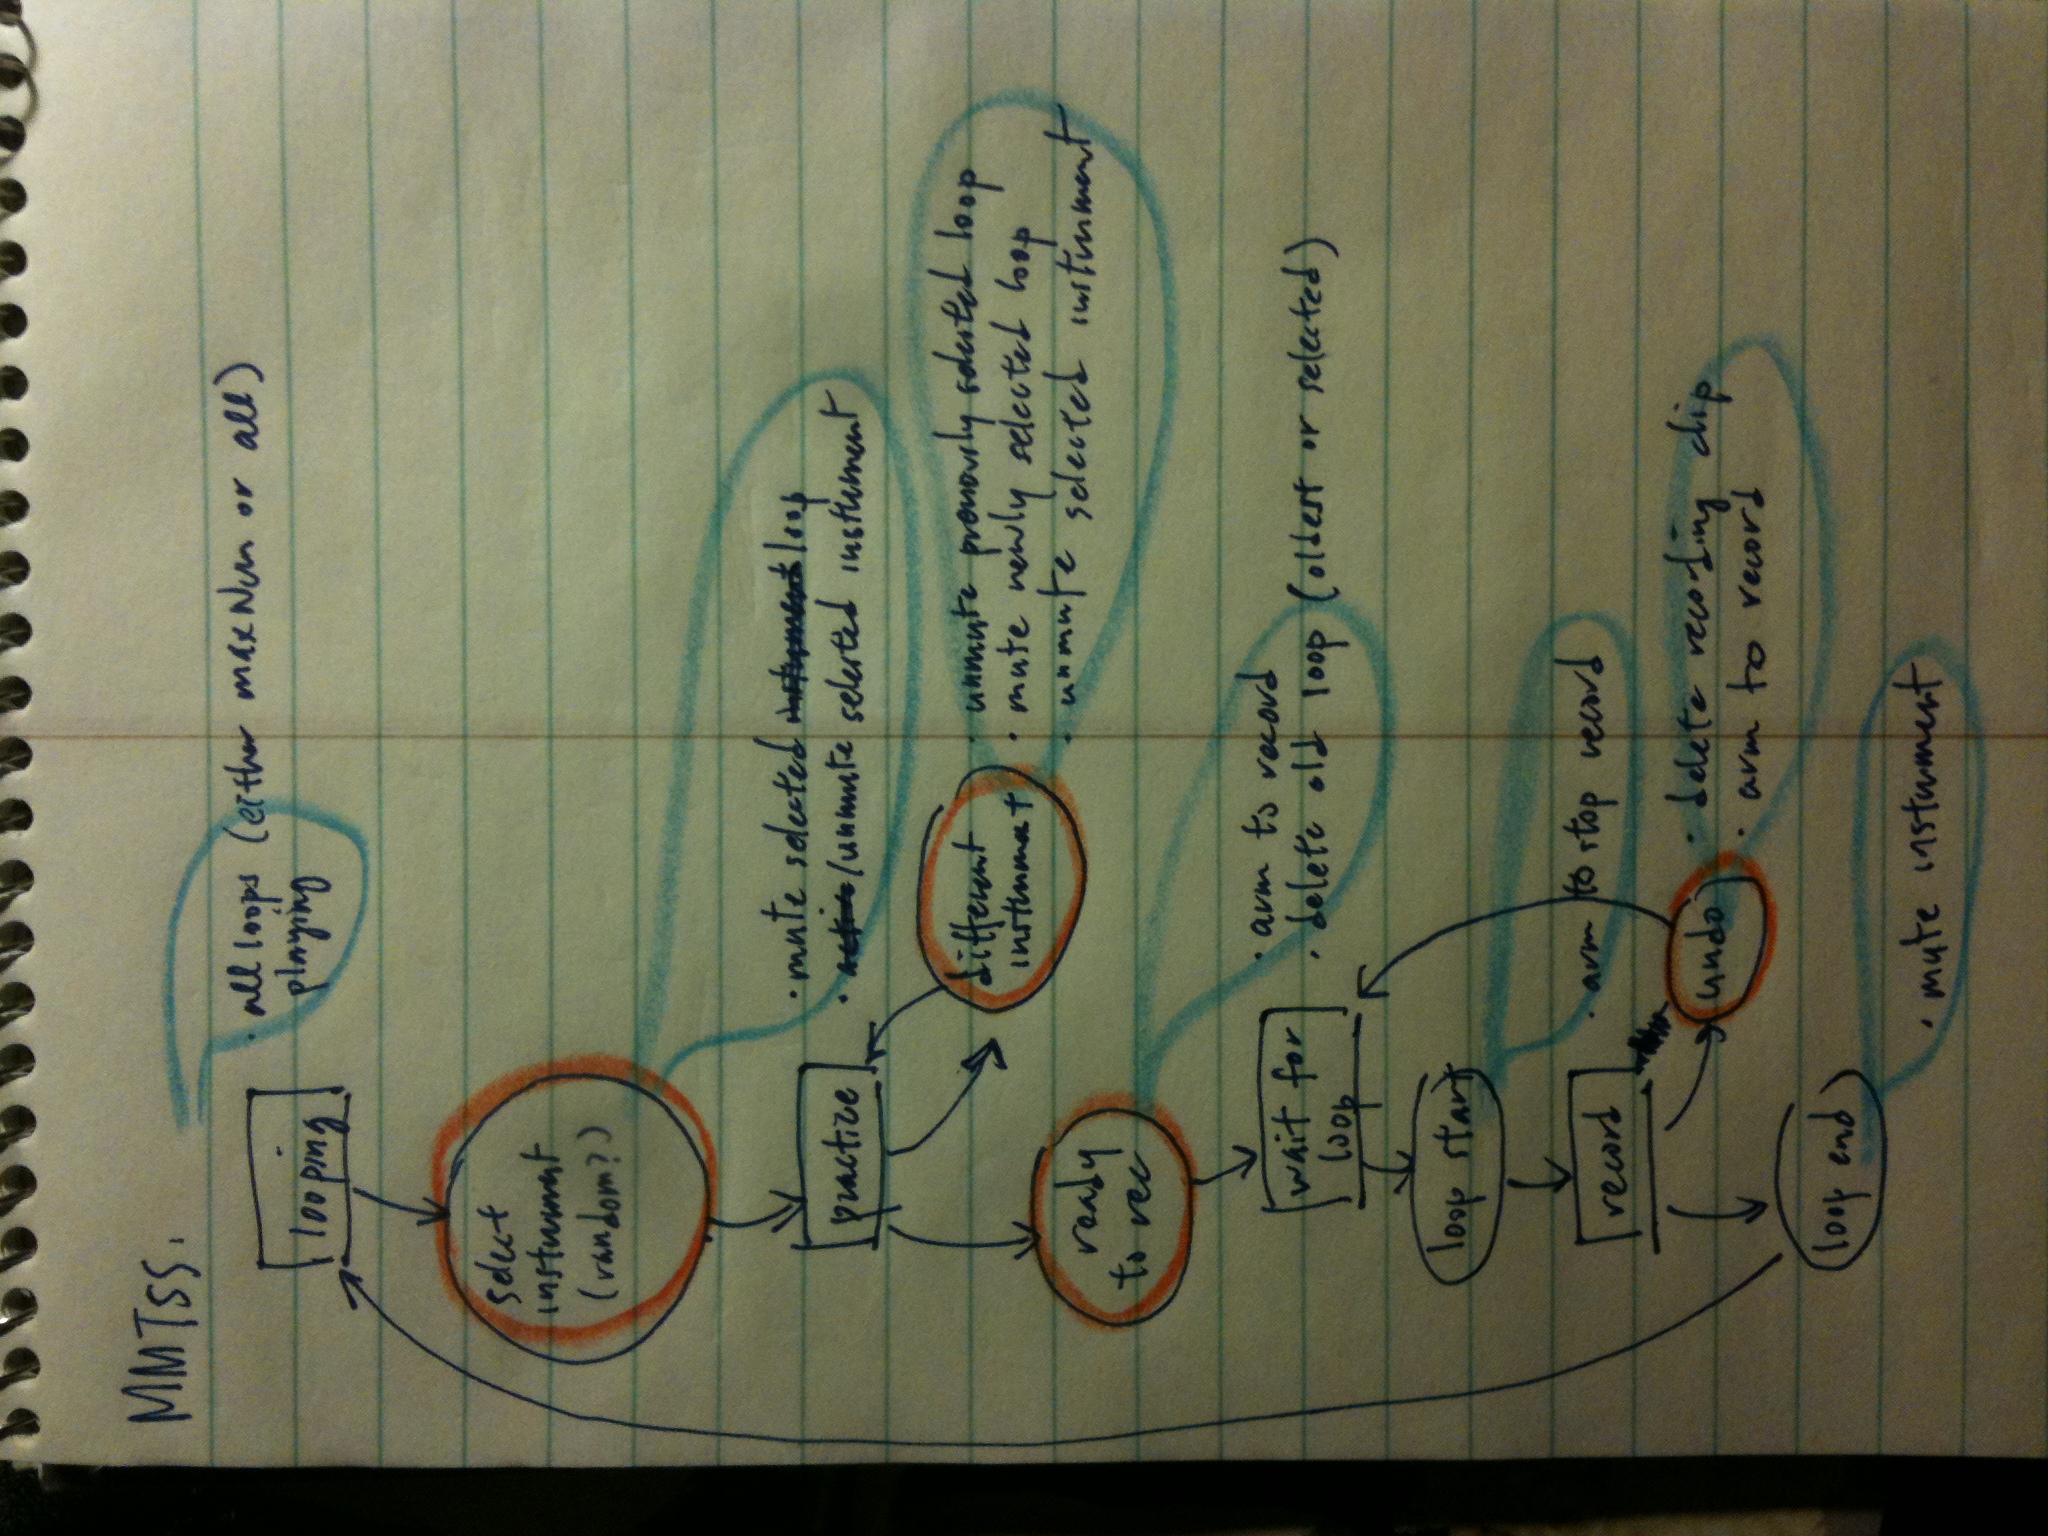 MMTSS.
looping
· all loops (either maxNum or all)
playing
select
instrument
(random?)
practice
· mute selected instrument loop
· active/unmute selected instrument
different
instrument
· unmute previously selected loop
· mute newly selected loop
· unmute selected instrument
ready
to rec
wait for
loop
· arm to record
· delete old loop (oldest or selected)
loop start
record
· arm to stop record
undo
· delete recording clip
· arm to record
loop end
· mute instrument